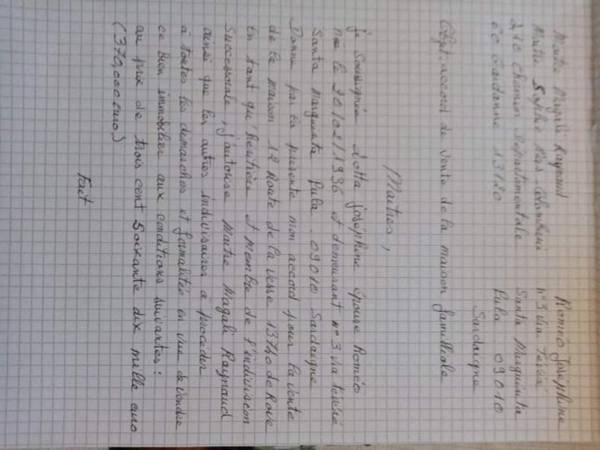 Maitre Magali Raynaud
Maitre Sophie
210 chemin Départementale
Gardanne 13120
Roméo Joséphine
n°3 via
Santa Margherita
Pula 09010
Sardaigne
Objet: accord de vente de la maison familiale
Maitres,
je soussignée Joséphine épouse Roméo
née le 20/02/1936 et demeurant n°3 via
Santa Margherita Pula 09010 Sardaigne
Donne par la présente mon accord pour la vente
de la maison 12 Route de la 13740 de Rove
En tant qu'héritière et membre de l'indivision
successorale, j'autorise Maitre Magali Raynaud
ainsi que les autres indivisaires à procéder
à toutes les démarches et formalités en vue de vendre
ce bien immobilier aux conditions suivantes:
au prix de trois cent soixante dix mille euro
(370,000 euro)
Fait